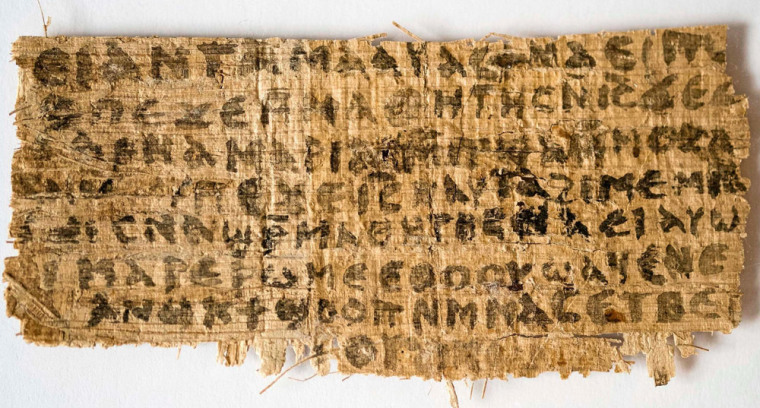 ⲉⲓ ⲁⲛ ⲧⲁⲙⲁⲁⲩ ⲁⲥϯ ⲛⲁⲉⲓ ⲡⲱ
ⲡⲉϫⲉ ⲙⲙⲁⲑⲏⲧⲏⲥ ⲛⲓ̅ⲥ̅ ϫⲉ ⲥ
ⲁⲣⲛⲁ ⲙⲁⲣⲓⲁⲙ ⲙⲡϣⲁ ⲙⲙⲟⲥ ⲁ
ⲡⲉϫⲉ ⲓ̅ⲥ̅ ⲛⲁⲩ ⲧⲁϩⲓⲙⲉ ⲙⲛ
ⲥⲛⲁϣⲣ̅ⲙⲁⲑⲏⲧⲏⲥ ⲛⲁⲉⲓ ⲁⲩⲱ
ⲓ ⲙⲁⲣⲉⲣⲱⲙⲉ ⲉⲑⲟⲟⲩ ϣⲁϥⲉ ⲛⲉ
ⲁⲛⲟⲕ ϯϣⲟⲟⲡ ⲛⲙⲙⲁⲥ ⲉⲧⲃⲉ